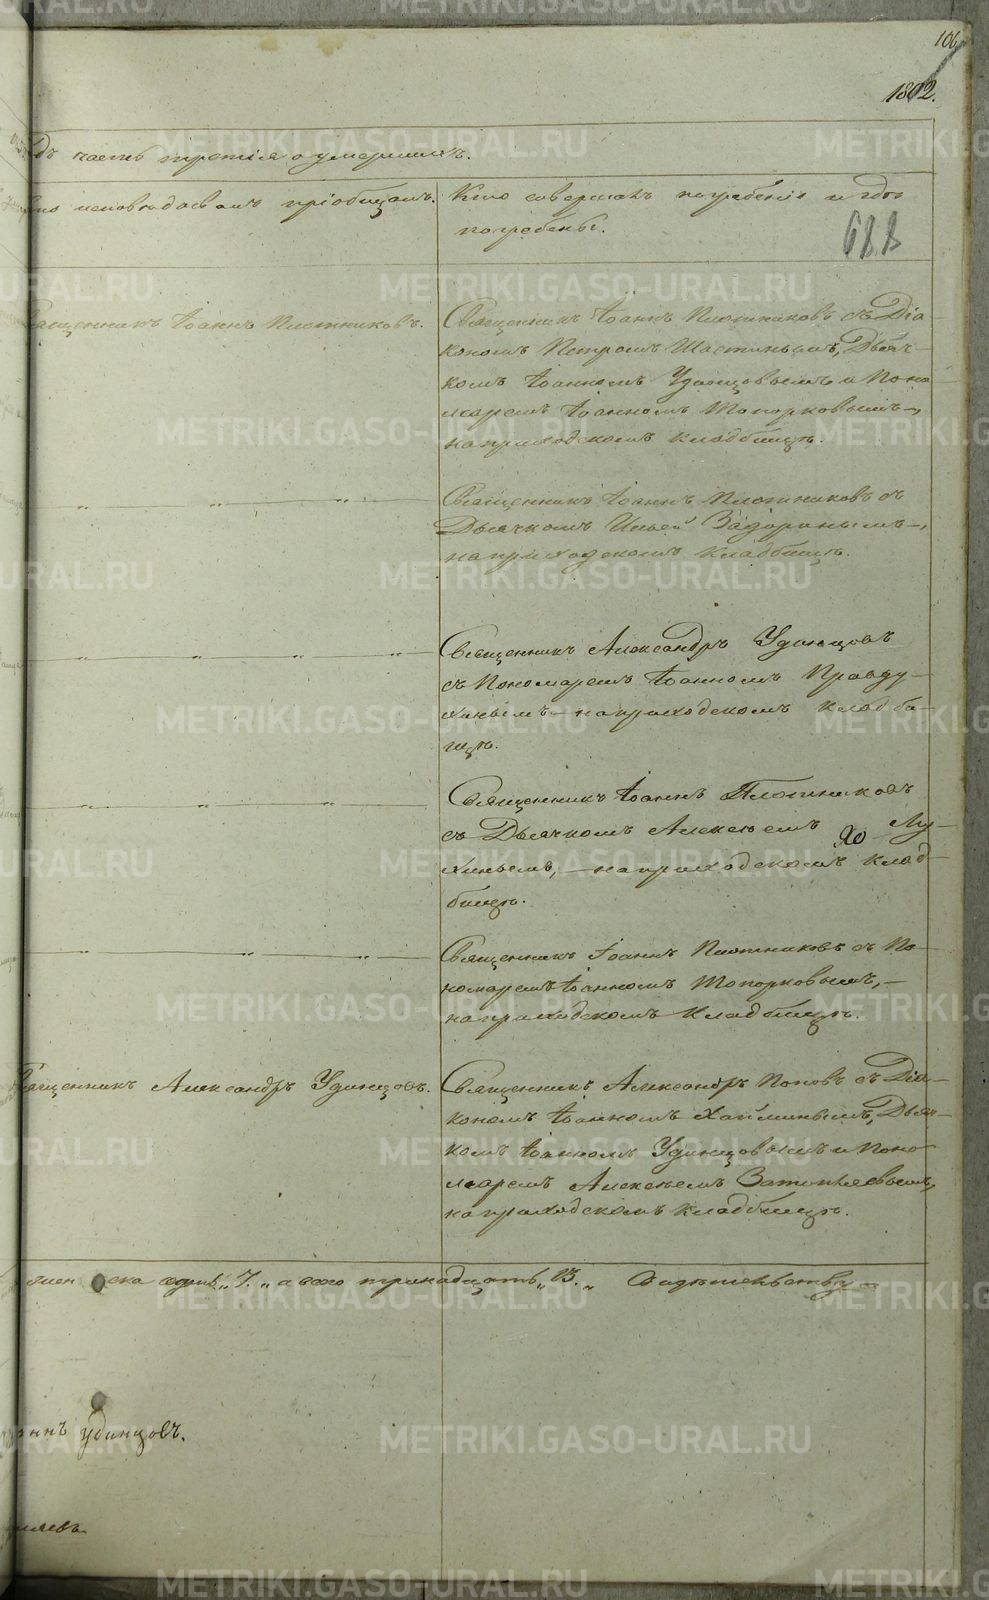 106
1802.
дъ часть третiя о умершихъ.
исповѣдовалъ прiобщалъ.
Кто совершалъ погребенiе и гдѣ
погребены.
688
Священникъ Iоаннъ Плотниковъ.
Священникъ Iоаннъ Плотниковъ съ Дiа-
кономъ Петромъ Дьяч-
комъ Iоанномъ Удинцовымъ и Поно
маремъ Iоанномъ Топорковымъ,
на приходскомъ кладбищѣ.
Священникъ Iоаннъ Плотниковъ съ
Дьячкомъ Ильей Задоринымъ,
на приходскомъ кладбищѣ.
Священникъ Александръ Удинцовъ
съ Пономаремъ Iоанномъ Правду-
хинымъ на приходскомъ кладби-
щѣ.
Священникъ Iоаннъ Плотниковъ
съ Дьячкомъ Алексѣемъ Лу-
хинымъ, на приходскомъ клад-
бищѣ.
Священникъ Iоаннъ Плотниковъ съ По-
номаремъ Iоанномъ Топорковымъ,
на приходскомъ кладбищѣ.
Священникъ Александръ Удинцовъ.
Священникъ Александръ Поповъ съ Дiа-
кономъ Iоанномъ Дьяч-
комъ Iоанномъ Удинцовымъ и Поно
маремъ Алексѣемъ
на приходскомъ кладбищѣ.
женска седмь „7.„ а всего тринадцать „13.„ Свидѣтельству-
аннъ Удинцовъ.
METRIKI.GASO-URAL.RU